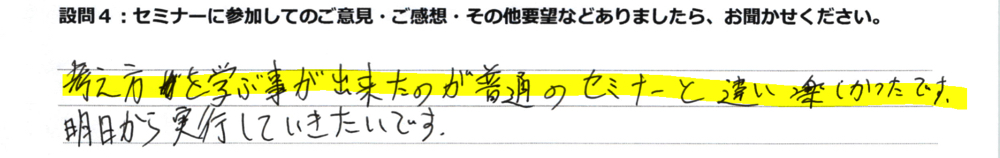 設問４：セミナーに参加してのご意見・ご感想・その他要望などありましたら、お聞かせください。
考え方を学ぶ事が出来たのが普通のセミナーと違い楽しかったです.
明日から実行していきたいです.